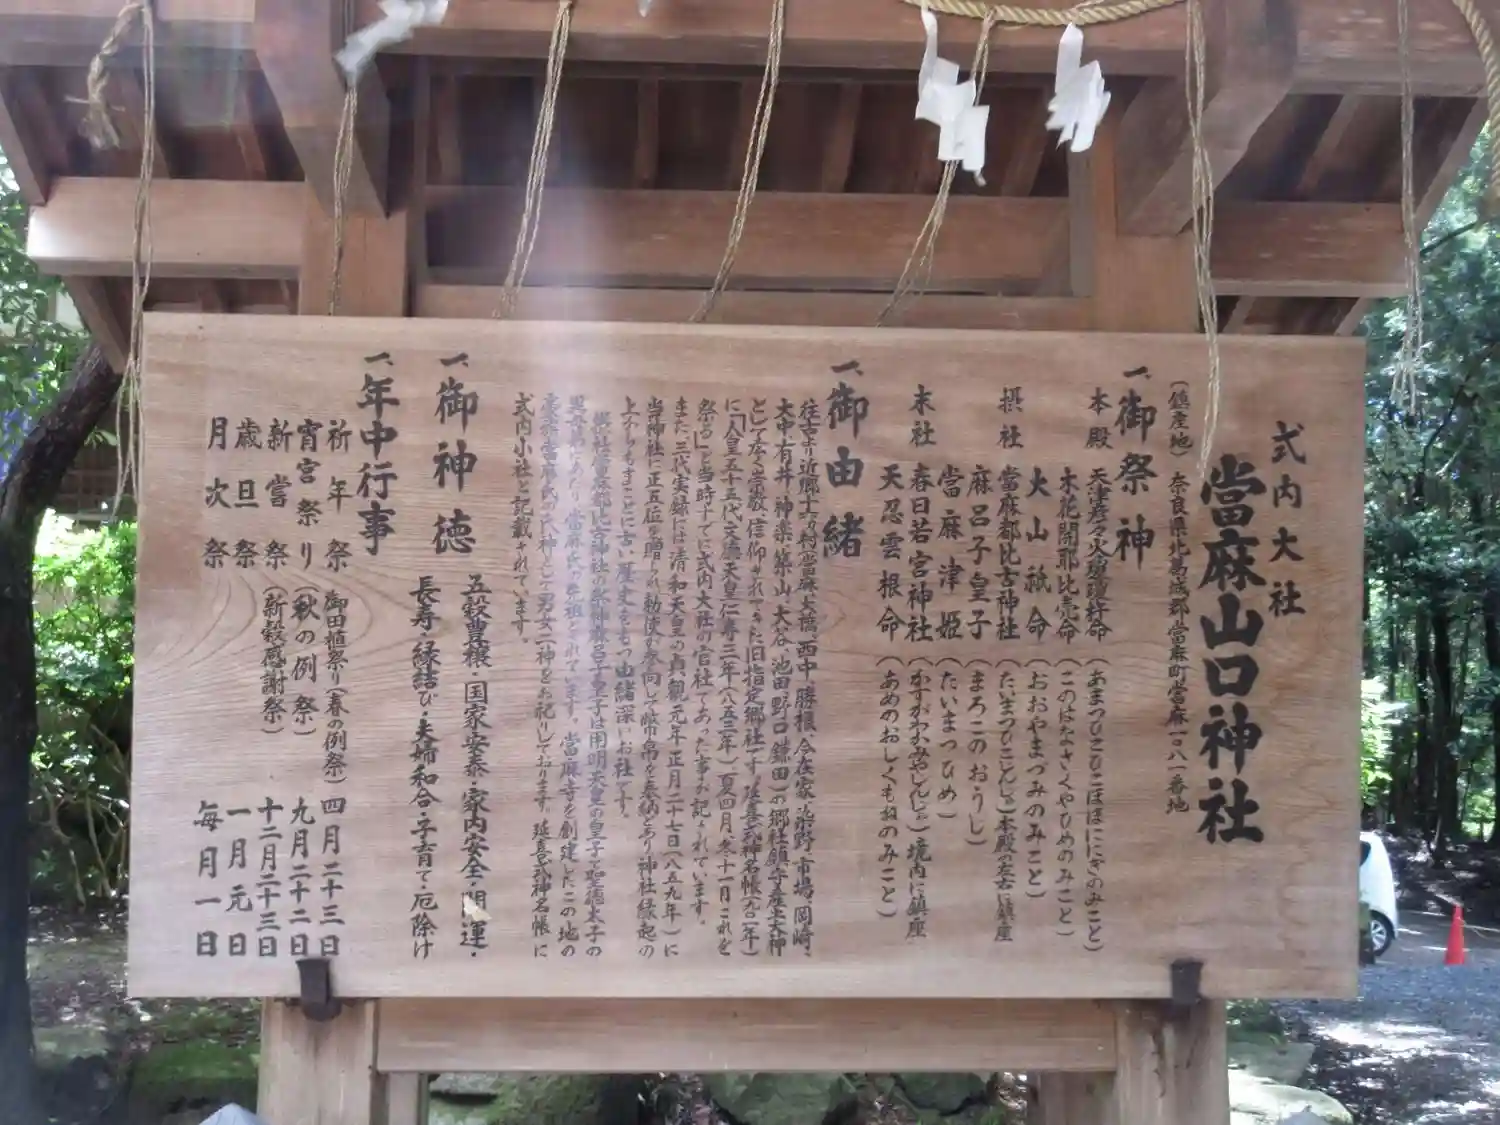 式内大社
當麻山口神社
(鎮座地) 奈良県北葛城郡當麻町當麻一〇八一番地
一、御祭神
本殿 天津彦々火瓊瓊杵命 (あまつひこひこほほににぎのみこと)
木花開耶比売命 (このはなさくやひめのみこと)
大山祇命 (おおやまづみのみこと)
摂社 當麻都比古神社 (たいまつひこじんじゃ) 本殿の左右に鎮座
麻呂子皇子 (まろこのおうじ)
當麻津姫 (たいまつひめ)
末社 春日若宮神社 (かすがわかみやじんじゃ) 境内に鎮座
天忍雲根命 (あめのおしくもねのみこと)
一、御由緒
往古より近郷十六ヶ村(當麻、大橋、西中、勝根、今在家、染野、市場、岡崎、
大中、有井、神楽、築山、大谷、池田、野口、鎌田)の郷社鎮守産土大神
として広く崇敬、信仰されてきた旧指定郷社です。延喜式神名帳(九〇二年)
に「人皇五十五代文徳天皇仁寿三年(八五三年)夏四月、冬十一月これを
祭る」と当時すでに式内大社の官社であった事が記されています。
また三代実録には清和天皇の貞観元年正月二十七日(八五九年)に
当神社に正五位を贈られ勅使が参向して幣帛を奉納とあり神社縁起の
上からもまことに古い歴史をもつ由緒深いお社です。
摂社當麻都比古神社の祭神麻呂子皇子は用明天皇の皇子で聖徳太子の
異母弟にあたり、當麻氏の先祖とされています。當麻寺を創建したこの地の
豪族當麻氏の氏神として男女二神をお祀りしております。延喜式神名帳に
式内小社と記載されています。
一、御神徳
五穀豊穣・国家安泰・家内安全・開運・
長寿・縁結び・夫婦和合・子育て・厄除け
一、年中行事
祈年祭 御田植祭り(春の例祭) 四月二十三日
宵宮祭り (秋の例祭) 九月二十二日
新嘗祭 (新穀感謝祭) 十二月二十三日
歳旦祭 一月元日
月次祭 毎月一日